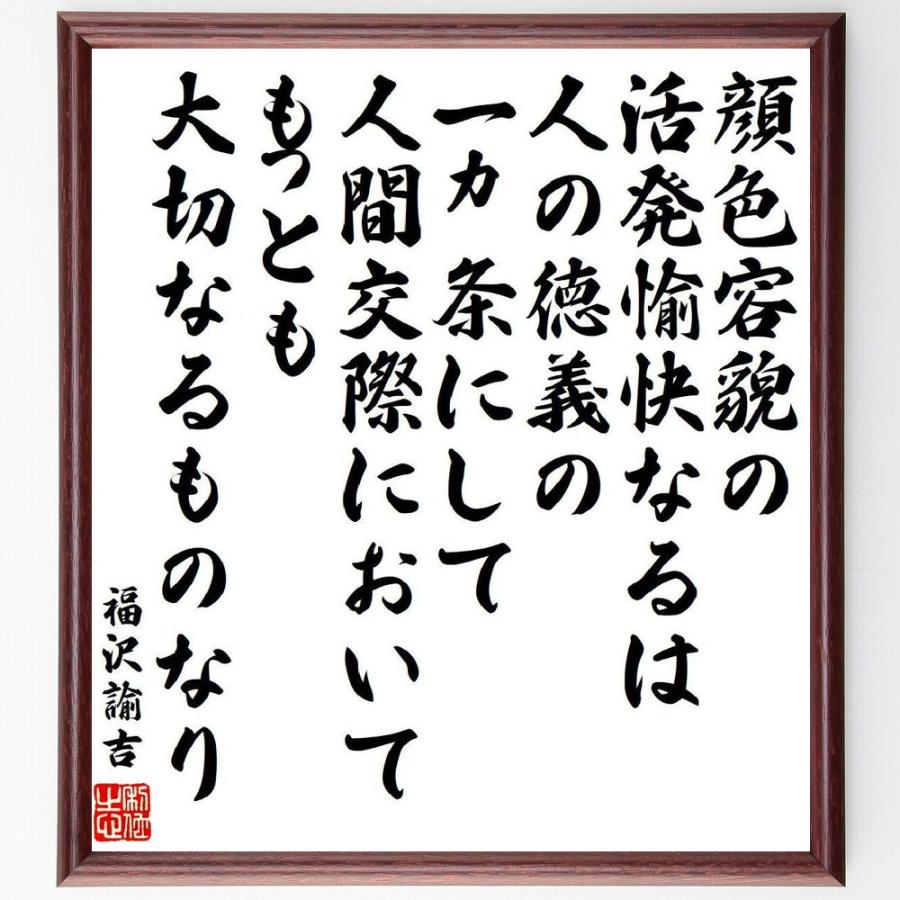 顔色容貌の
活発愉快なるは
人の徳義の
一カ条にして
人間交際において
もっとも
大切なるものなり
福沢諭吉